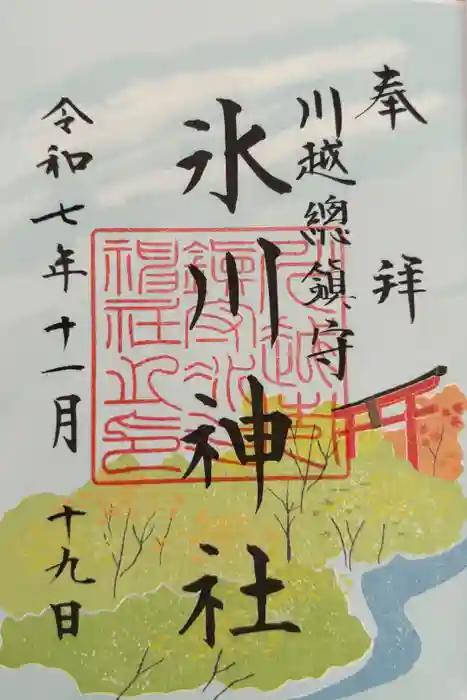 奉拝
川越總鎮守
氷川神社
令和七年十一月十九日